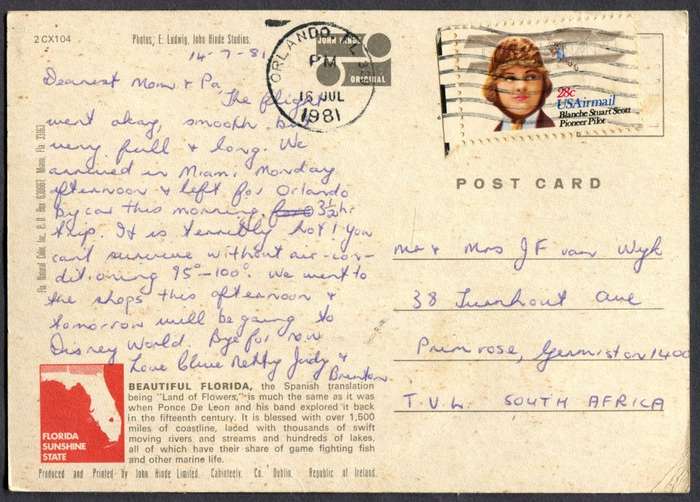 2CX104
Photos; E. Ludwig, John Hinde Studios.
14-7-81
Dearest Mom & Pa
The flight
went okay, smooth but
very full & long. We
arrived in Miami Monday
afternoon & left for Orlando
by car this morning. 3½ hr
trip. It is terribly hot! You
can't survive without air-con-
ditioning 95°-100°. We went to
the shops this afternoon &
tomorrow will be going to
Disney World. Bye for now
Love Clive Netty Judy &
Brenton
Fla. Natural Color, Inc., P.O. Box 630067 Miami, Fla. 33163
ORLANDO, FL
PM
16 JUL
1981
JOHN HINDE
ORIGINAL
28c
USAirmail
Blanche Stuart Scott
Pioneer Pilot
POST CARD
Mr & Mrs JF van Wyk
38 Turnhout Ave
Primrose, Germiston 1400
T.V.L. SOUTH AFRICA
FLORIDA
SUNSHINE
STATE
BEAUTIFUL FLORIDA, the Spanish translation
being "Land of Flowers," is much the same as it was
when Ponce De Leon and his band explored it back
in the fifteenth century. It is blessed with over 1,500
miles of coastline, laced with thousands of swift
moving rivers and streams and hundreds of lakes,
all of which have their share of game fighting fish
and other marine life.
Produced and Printed by John Hinde Limited, Cabinteely, Co. Dublin, Republic of Ireland.